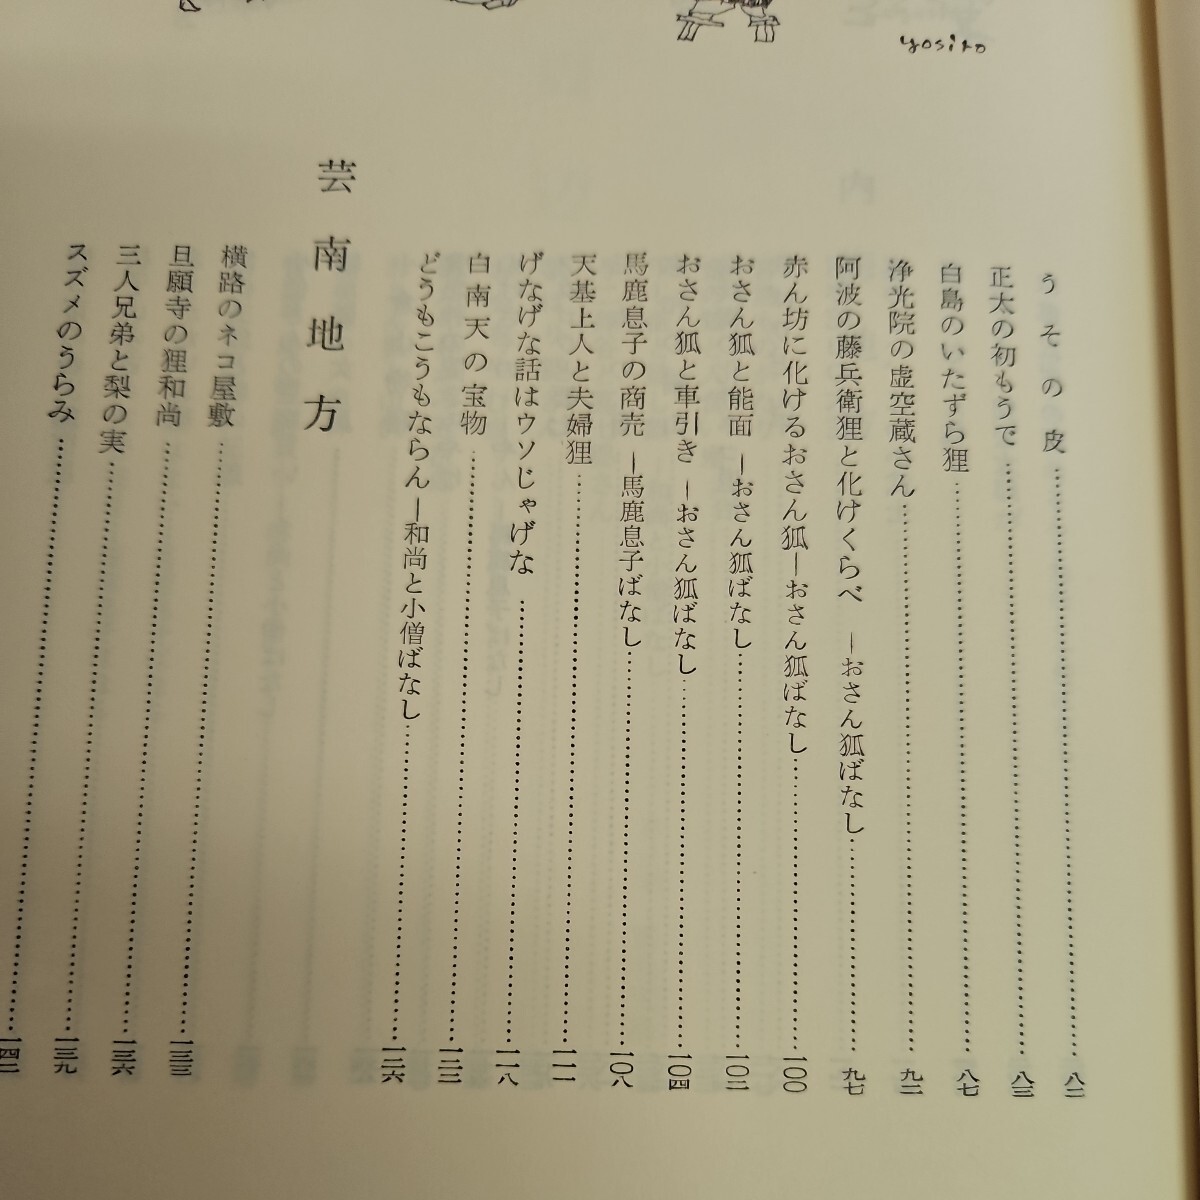 yosiro
うその皮……八二
正太の初もうで……八三
白島のいたずら狸……八七
浄光院の虚空蔵さん……九二
阿波の藤兵衛狸と化けくらべ ―おさん狐ばなし……九七
赤ん坊に化けるおさん狐―おさん狐ばなし……一〇〇
おさん狐と能面 ―おさん狐ばなし……一〇二
おさん狐と車引き ―おさん狐ばなし……一〇四
馬鹿息子の商売 ―馬鹿息子ばなし……一〇八
天基上人と夫婦狸……一一一
げなげな話はウソじゃげな……一一八
白南天の宝物……一二三
どうもこうもならん―和尚と小僧ばなし……一二六
芸南地方
横路のネコ屋敷……一三三
旦願寺の狸和尚……一三六
三人兄弟と梨の実……一三九
スズメのうらみ……一四二